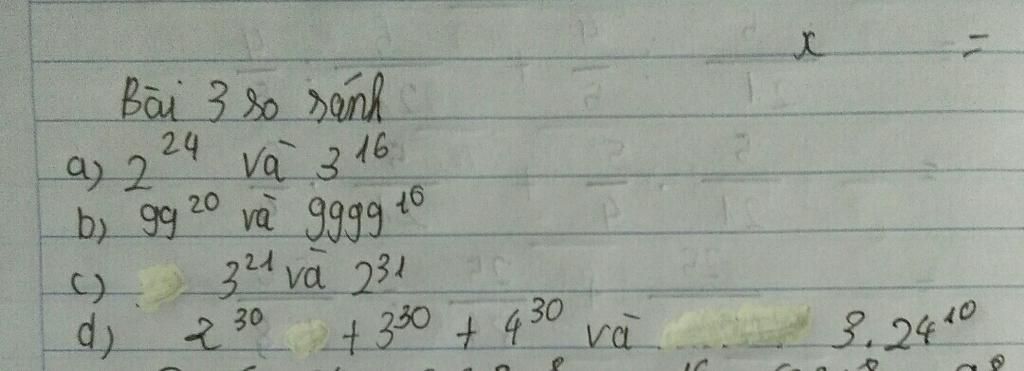 x =
Bài 3 so sánh
a) 2²⁴ và 3¹⁶
b) 99²⁰ và 9999¹⁰
c) 3²¹ và 2³¹
d) 2³⁰ + 3³⁰ + 4³⁰ và 3.24¹⁰